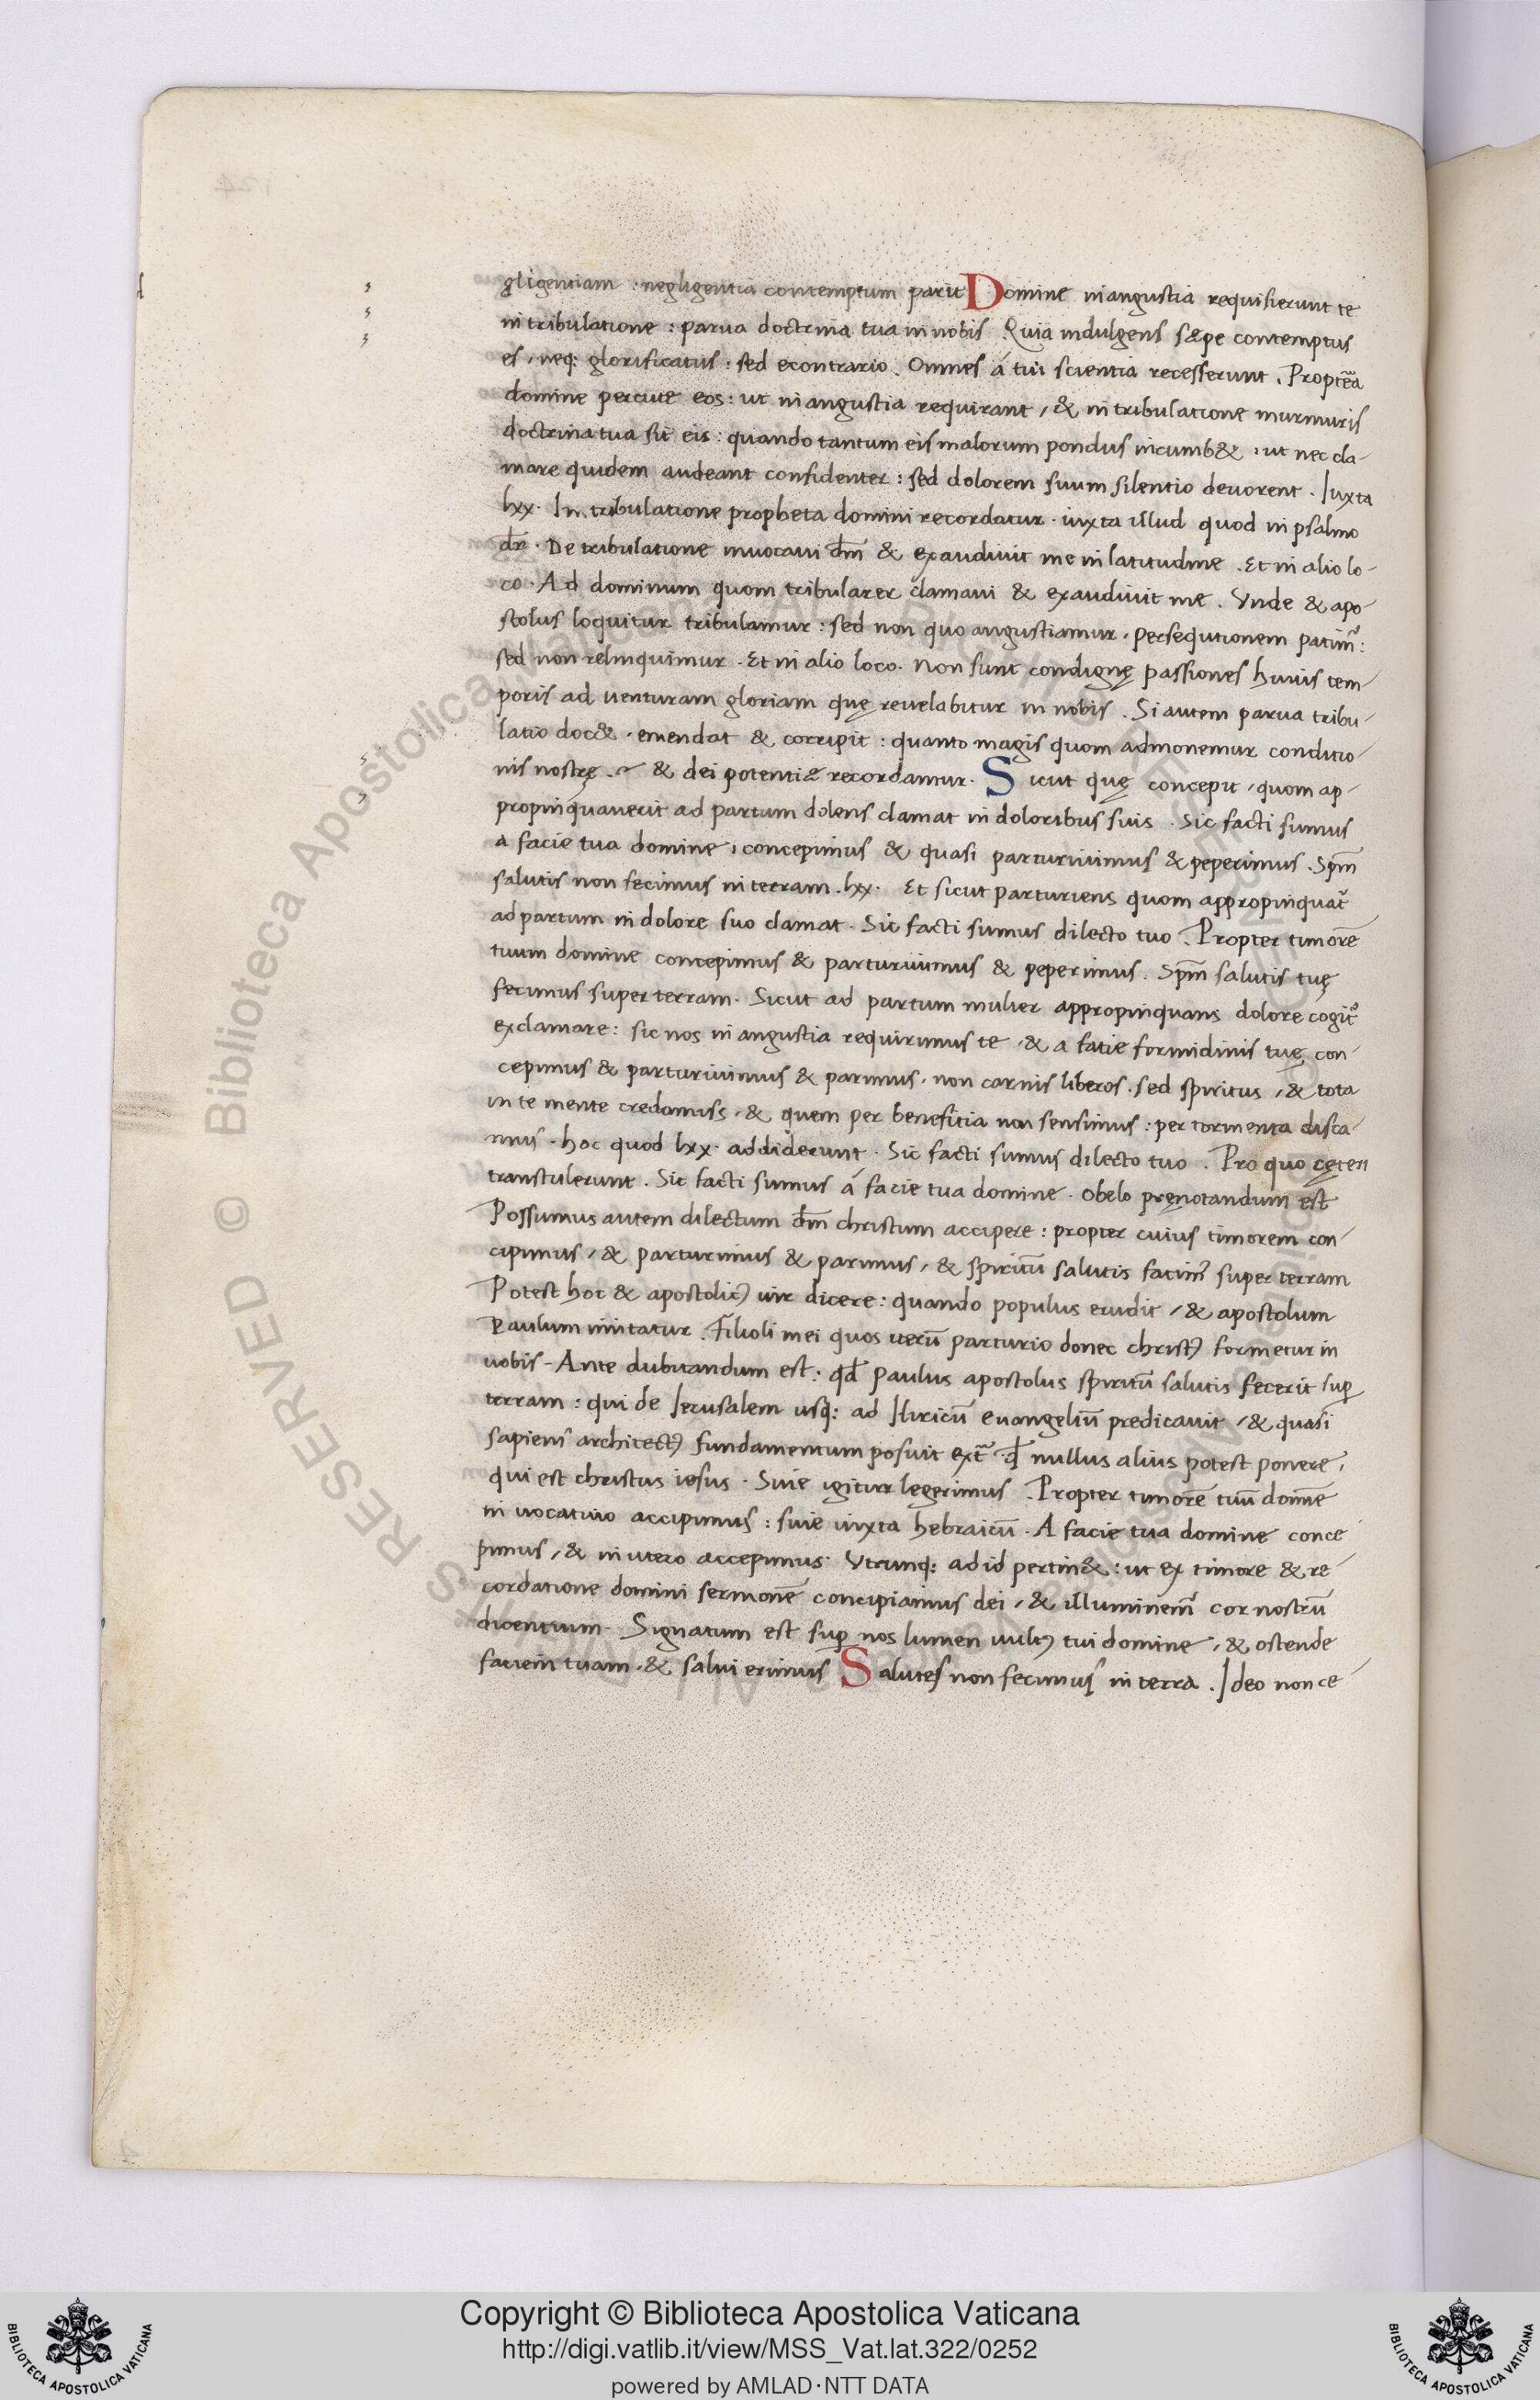 gligentiam : negligentia contemptum parit Domine in angustia requisierunt te
in tribulatione : parua doctrina tua in nobis . Quia indulgens sæpe contemptus
es , neq; glorificatus : sed econtrario . Omnes á tui scientia recesserunt . Propt̄ea
domine percute eos : ut in angustia requirant , & in tribulatione murmuris
doctrina tua sit eis : quando tantum eis malorum pondus incumb& : ut nec cla-
mare quidem audeant confidenter : sed dolorem suum silentio deuorent . Iuxta
lxx . In tribulatione propheta domini recordatur . iuxta illud quod in psalmo
dr̄ . De tribulatione inuocaui dn̄m & exaudiuit me in latitudine . Et in alio lo-
co . Ad dominum quom tribularer clamaui & exaudiuit me . Vnde & apo-
stolus loquitur tribulamur : sed non quo angustiamur , persequtionem patim̄ :
sed non relinquimur . Et in alio loco . Non sunt condignę passiones huius tem-
poris ad uenturam gloriam quę reuelabitur in nobis . Si autem parua tribu-
latio doc& , emendat & corripit : quanto magis quom admonemur conditio-
nis nostrę . & dei potentiæ recordamur . Sicut quę concepit , quom ap-
propinquauerit ad partum dolens clamat in doloribus suis . Sic facti sumus
a facie tua domine , concepimus & quasi parturiuimus & peperimus . Spm̄
salutis non fecimus in terram . lxx . Et sicut parturiens quom appropinquat̄
ad partum in dolore suo clamat . Sic facti sumus dilecto tuo . Propter timorē
tuum domine concepimus & parturiuimus & peperimus . Spm̄ salutis tuę
fecimus super terram . Sicut ad partum mulier appropinquans dolore cogit̄
exclamare : sic nos in angustia requirimus te , & a facie formidinis tuę con-
cepimus & parturiuimus & parimus , non carnis liberos . sed spiritus , & tota
in te mente credamus , & quem per beneficia non sensimus : per tormenta disca-
mus . hoc quod lxx . addiderunt . Sic facti sumus dilecto tuo . Pro quo cęteri
transtulerunt . Sic facti sumus á facie tua domine . Obelo pręnotandum est
Possumus autem dilectum dn̄m christum accipere : propter cuius timorem con-
cipimus , & parturimus & parimus , & spiritū salutis facim̄ super terram
Potest hoc & apostolicꝰ uir dicere : quando populus erudit , & apostolum
Paulum imitatur . Filioli mei quos iterū parturio donec christꝰ formetur in
uobis - Ante dubitandum est : qd̄ paulus apostolus spiritū salutis fecerit sup̄
terram : qui de Ierusalem usq; ad Iliricū euangeliū predicauit , & quasi
sapiens architectꝰ fundamentum posuit ext̄ qd̄ nullus alius potest ponere ,
qui est christus iesus . Siue igitur legerimus . Propter timorē tuū domīe
in uocatiuo accipimus : siue iuxta hebraicū . A facie tua domine conce
pimus , & in utero accepimus . Vtrunq; ad id pertin& : ut ex timore & re-
cordatione domini sermonē concipiamus dei , & illuminem̄ cor nostrū
dicentium . Signatum est sup̄ nos lumen uultꝰ tui domine , & ostende
faciem tuam , & salui erimus Salutes non fecimus in terra . Ideo non ce-
Copyright © Biblioteca Apostolica Vaticana
http://digi.vatlib.it/view/MSS_Vat.lat.322/0252
powered by AMLAD·NTT DATA
BIBLIOTECA APOSTOLICA VATICANA
BIBLIOTECA APOSTOLICA VATICANA